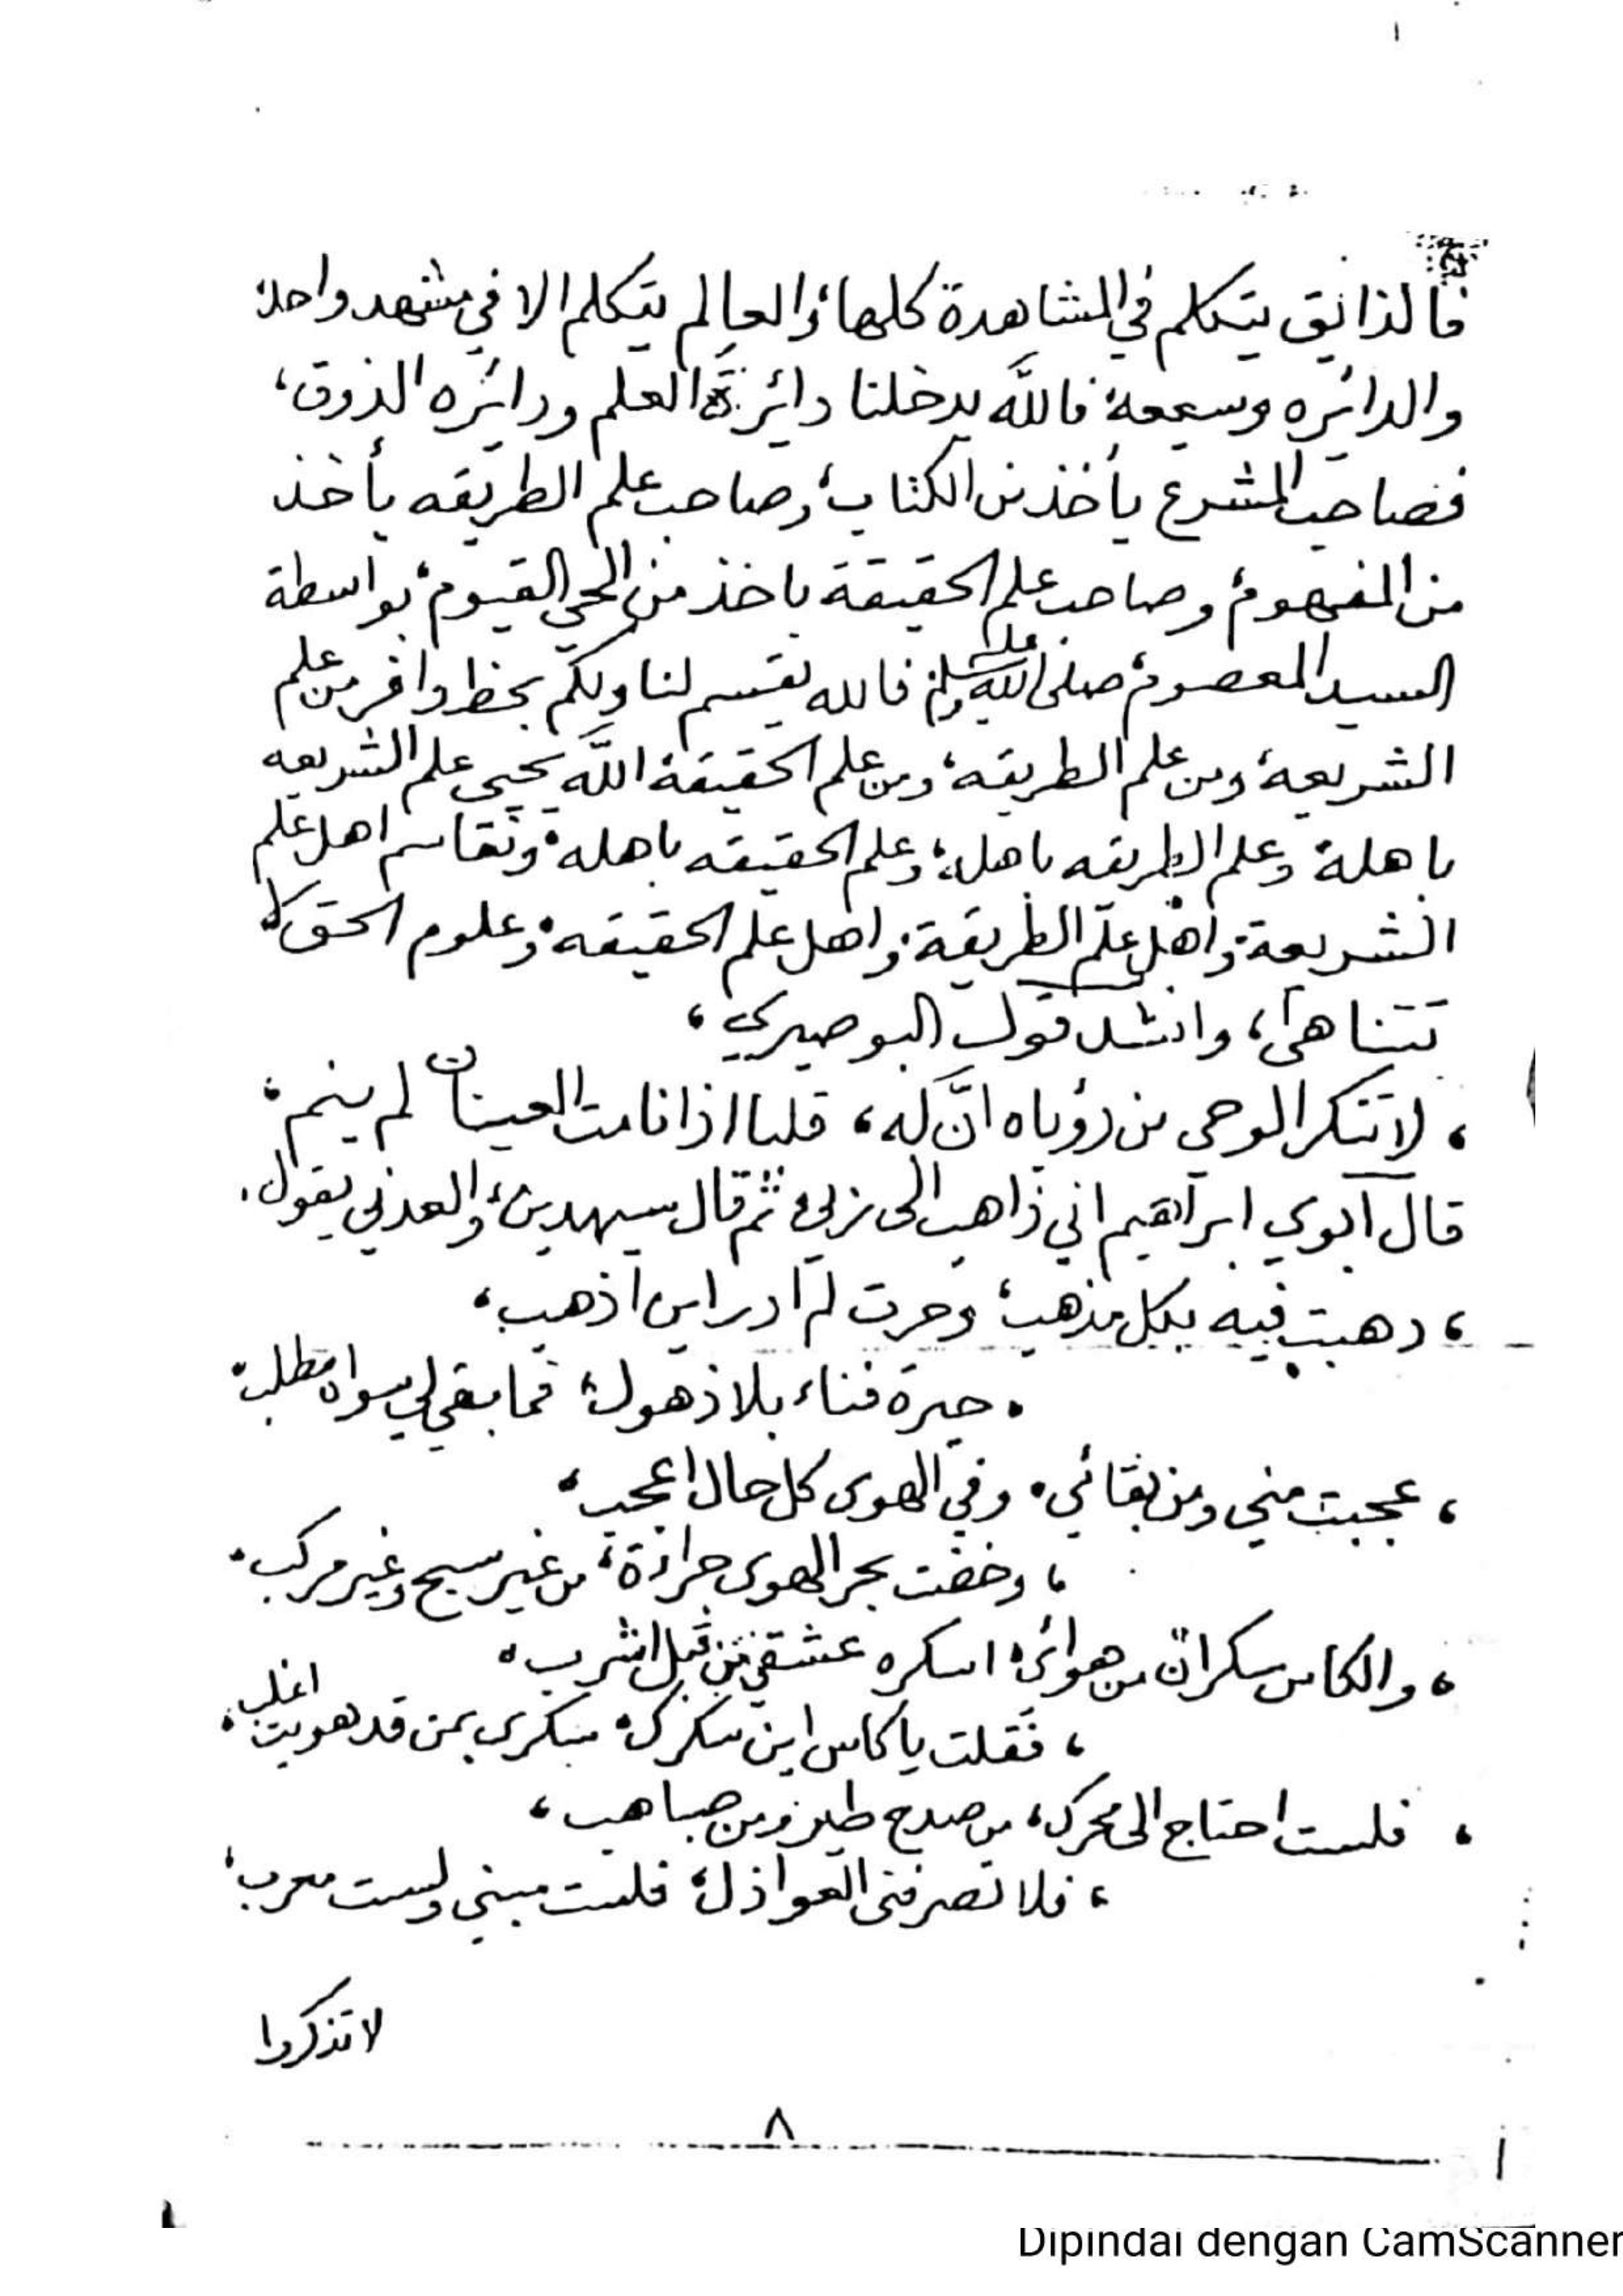 فالذائق يتكلم في المشاهدة كلها، والعالم يتكلم الا في مشهد واحد،
والدائره وسيعة، فالله يدخلنا دائرة العلم ودائره الذوق،
فصاحب المشرع يأخذ من الكتاب، وصاحب علم الطريقه يأخذ
من المفهوم، وصاحب علم الحقيقة ياخذ من الحي القيوم، بواسطة
السيد المعصوم، صلى الله عليه وسلم، فالله يقسم لنا ولكم بحظ وافر من علم
الشريعة، ومن علم الطريقه، ومن علم الحقيقة، الله يحيى علم الشريعه
باهلة، وعلم الطريقه باهله، وعلم الحقيقه باهله، وتقاسم اهل علم
الشريعة، واهل علم الطريقة، واهل علم الحقيقه، وعلوم الحق لا
تتناهى، وانشد قول البوصيري،
، لا تنكر الوحي من رؤياه انّ له، قلبا اذا نامت العينان لم ينم،
قال ابوي ابراهيم اني ذاهب الى ربي، ثم قال سيهدين، والعدني يقول،
، دهبت فيه بكل مذهب، وحرت لم ادر اين اذهب،
، حيرة فناء بلا ذهول، فما بقي لي سواه مطلب،
، عجبت مني ومن بقائي، وفي الهوى كل حال اعجب،
، وخضت بحر الهوى جراءة، من غير سبح وغير مركب،
، والكاس سكران من هوائي، اسكره عشقي من قبل اشرب،
، فقلت يا كاس اين سكرك، سكري بمن قد هويت اغلب،
، فلست احتاج الى محرك، من صدح طير ومن صبا هب،
، فلا تصرفني العواذل، فلست مبني ولست معرب،
لا تذكروا
٨
Dipindai dengan CamScanner